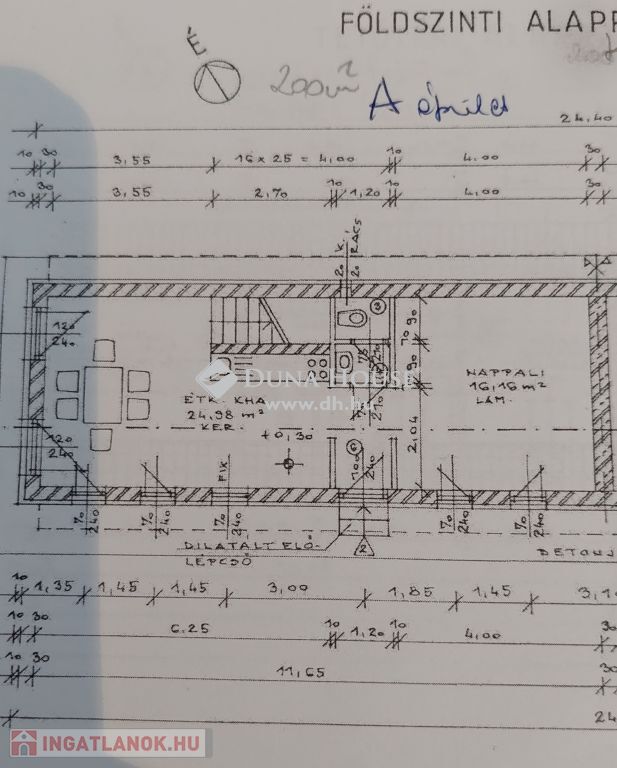 FÖLDSZINTI ALAPR
É
200 m²
A épület
24.40
10 30 3,55 16 x 25 = 4,00 10 4.00 30
10 30 3,55 2,70 10 1,20 10 4,00 30
20 K.
20 RÁCS
120
240
10 90
NAPPALI
16,16 m²
LAM.
DUNA HOUSE
www.dh.hu
ÉTK. KHA
24,98 m²
KER.
+0,30
90
210
2,04
120
240
100
240
FIX
70
240
70
240
70
240
70
240
70
240
DILATÁLT ELŐ-
LÉPCSŐ
10
1,35 1,45 1,45 3,00 1,85 1,45 3,1
10 30 6.25 10 1,20 10 4,00 30
10 30 11,65 30
24
INGATLANOK.HU